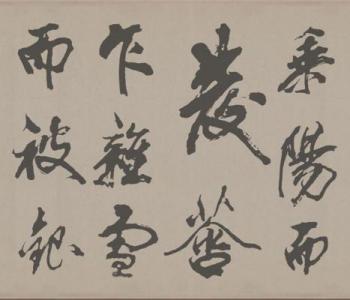 乘陽而
發
乍雜雪
而被銀